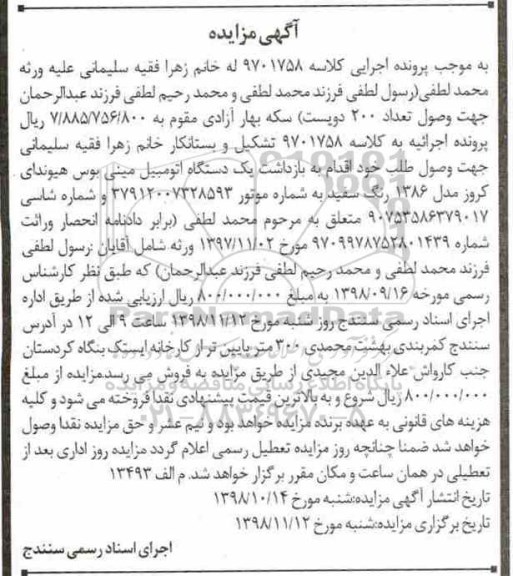 آگهی مزایده
به موجب پرونده اجرایی کلاسه ۹۷۰۱۷۵۸ له خانم زهرا فقیه سلیمانی علیه ورثه
محمد لطفی(رسول لطفی فرزند محمد لطفی و محمد رحیم لطفی فرزند عبدالرحمان
جهت وصول تعداد ۲۰۰ دویست) سکه بهار آزادی مقوم به ۷/۸۸۵/۷۵۶/۸۰۰ ریال
پرونده اجرائیه به کلاسه ۹۷۰۱۷۵۸ تشکیل و بستانکار خانم زهرا فقیه سلیمانی
جهت وصول طلب خود اقدام به بازداشت یک دستگاه اتومبیل مینی بوس هیوندای
کروز مدل ۱۳۸۶ رنگ سفید به شماره موتور ۳۷۹۱۲۰۰۷۳۲۸۵۹۳ و شماره شاسی
۹۰۷۵۳۵۸۶۳۷۹۰۱۷ متعلق به مرحوم محمد لطفی (برابر دادنامه انحصار وراثت
شماره ۹۷۰۹۹۷۸۷۵۲۸۰۱۴۳۹ مورخ ۱۳۹۷/۱۱/۰۲ ورثه شامل آقایان :رسول لطفی
فرزند محمد لطفی و محمد رحیم لطفی فرزند عبدالرحمان) که طبق نظر کارشناس
رسمی مورخه ۱۳۹۸/۰۹/۱۶ به مبلغ ۸۰۰/۰۰۰/۰۰۰ ریال ارزیابی شده از طریق اداره
اجرای اسناد رسمی سنندج روز شنبه مورخ ۱۳۹۸/۱۱/۱۲ ساعت ۹ الی ۱۲ در آدرس
سنندج کمربندی بهشت محمدی ۳۰۰ متر پایین تر از کارخانه ایستک بنگاه کردستان
جنب کارواش علاء الدین مجیدی از طریق مزایده به فروش می رسد.مزایده از مبلغ
۸۰۰/۰۰۰/۰۰۰ ریال شروع و به بالاترین قیمت پیشنهادی نقدا فروخته می شود و کلیه
هزینه های قانونی به عهده برنده مزایده خواهد بود و نیم عشر و حق مزایده نقدا وصول
خواهد شد ضمنا چنانچه روز مزایده تعطیل رسمی اعلام گردد مزایده روز اداری بعد از
تعطیلی در همان ساعت و مکان مقرر برگزار خواهد شد. م الف ۱۳۴۹۳
تاریخ انتشار آگهی مزایده:شنبه مورخ ۱۳۹۸/۱۰/۱۴
تاریخ برگزاری مزایده:شنبه مورخ ۱۳۹۸/۱۱/۱۲
اجرای اسناد رسمی سنندج
ParsNamadData
پایگاه اطلاع رسانی مناقصه و مزایده
۰۲۱-۸۸۳۴۹۶۷۰-۵